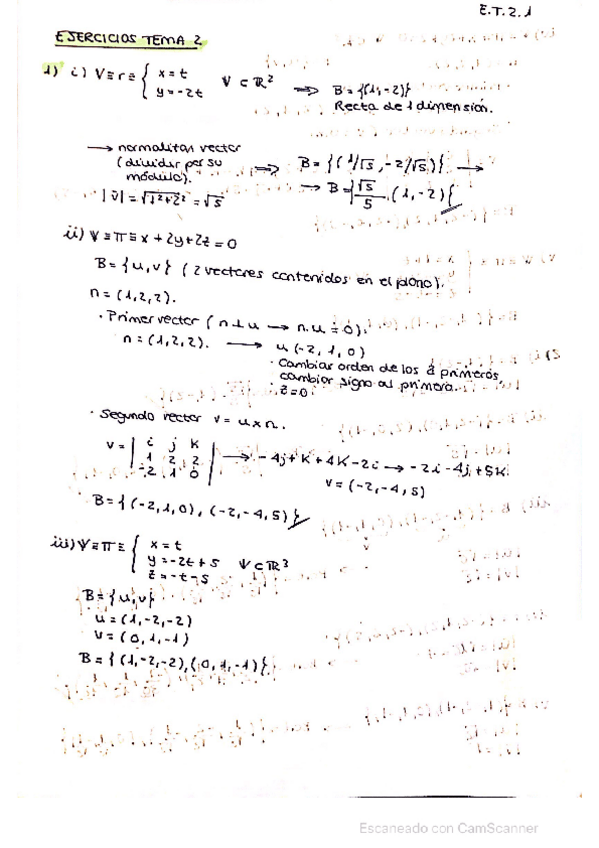 E.T.2.1
EJERCICIOS TEMA 2
1) i) V≡r≡ { x=t
y=-2t V ⊂ ℝ² ⇒ B={(1,-2)}
Recta de 1 dimensión.
→ normalitzar vector
(dividir per su
módulo). ⇒ B={(1/√5, -2/√5)} →
|v̄|=√1²+2² = √5 → B={√5/5 · (1,-2)}
ii) V≡π≡x+2y+2z=0
B={u,v} (2 vectores contenidos en el plano).
n=(1,2,2).
· Primer vector (n⊥u → n.u=0).
n=(1,2,2). → u(-2,1,0)
· Cambiar orden de los 2 primeros,
cambiar signo al primero.
· z=0
· Segundo vector v=u×n.
v= | i j k
1 2 2
-2 1 0 | → -4j+k+4k-2i → -2i-4j+5k
v=(-2,-4,5)
B={(-2,1,0), (-2,-4,5)}
iii) V≡π≡ { x=t
y=-2t+s V⊂ℝ³
z=-t-s
B={u,v}
u=(1,-2,-2)
v=(0,1,-1)
B={(1,-2,-2),(0,1,-1)}.
Escaneado con CamScanner